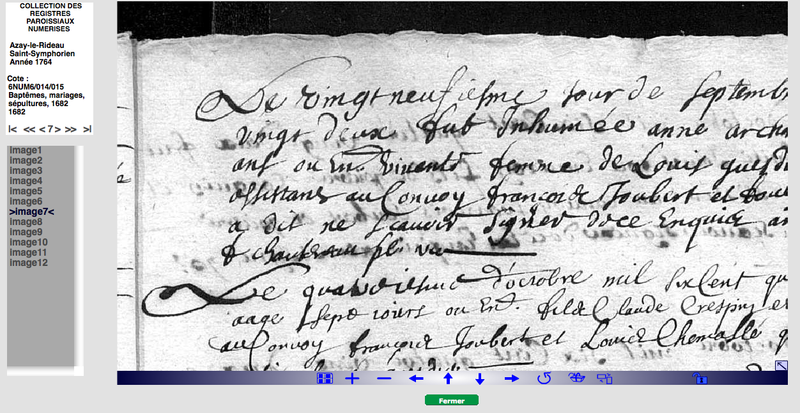 COLLECTION DES
REGISTRES
PAROISSIAUX
NUMERISES
Azay-le-Rideau
Saint-Symphorien
Année 1764
Cote :
6NUM6/014/015
Baptêmes, mariages,
sépultures, 1682
1682
|< << < 7 > >> >|
image1
image2
image3
image4
image5
image6
>image7<
image8
image9
image10
image11
image12
Le vingt neufiesme Jour de septemb
vingt deux fut Inhumée anne
ans ou En. vivente femme de Louis
assistans au Convoy francois Joubert et
a dit ne scavoir signer de ce Enquise
f chauteau pb. v
Le quatriesme d'octobre mil six Cent qu
aagé sept iours ou En. fil de Claude Crespin et
au Convoy francois Joubert et Louis Chemallé
Fermer